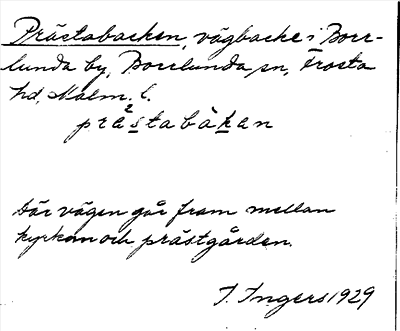 Prästabacken, vägbacke i Borr-
lunda by, Borrlunda sn, Frosta
hd, Malm. l.
prä²stabåkan
Där vägen går fram mellan
kyrkan och prästgården.
I. Ingers 1929